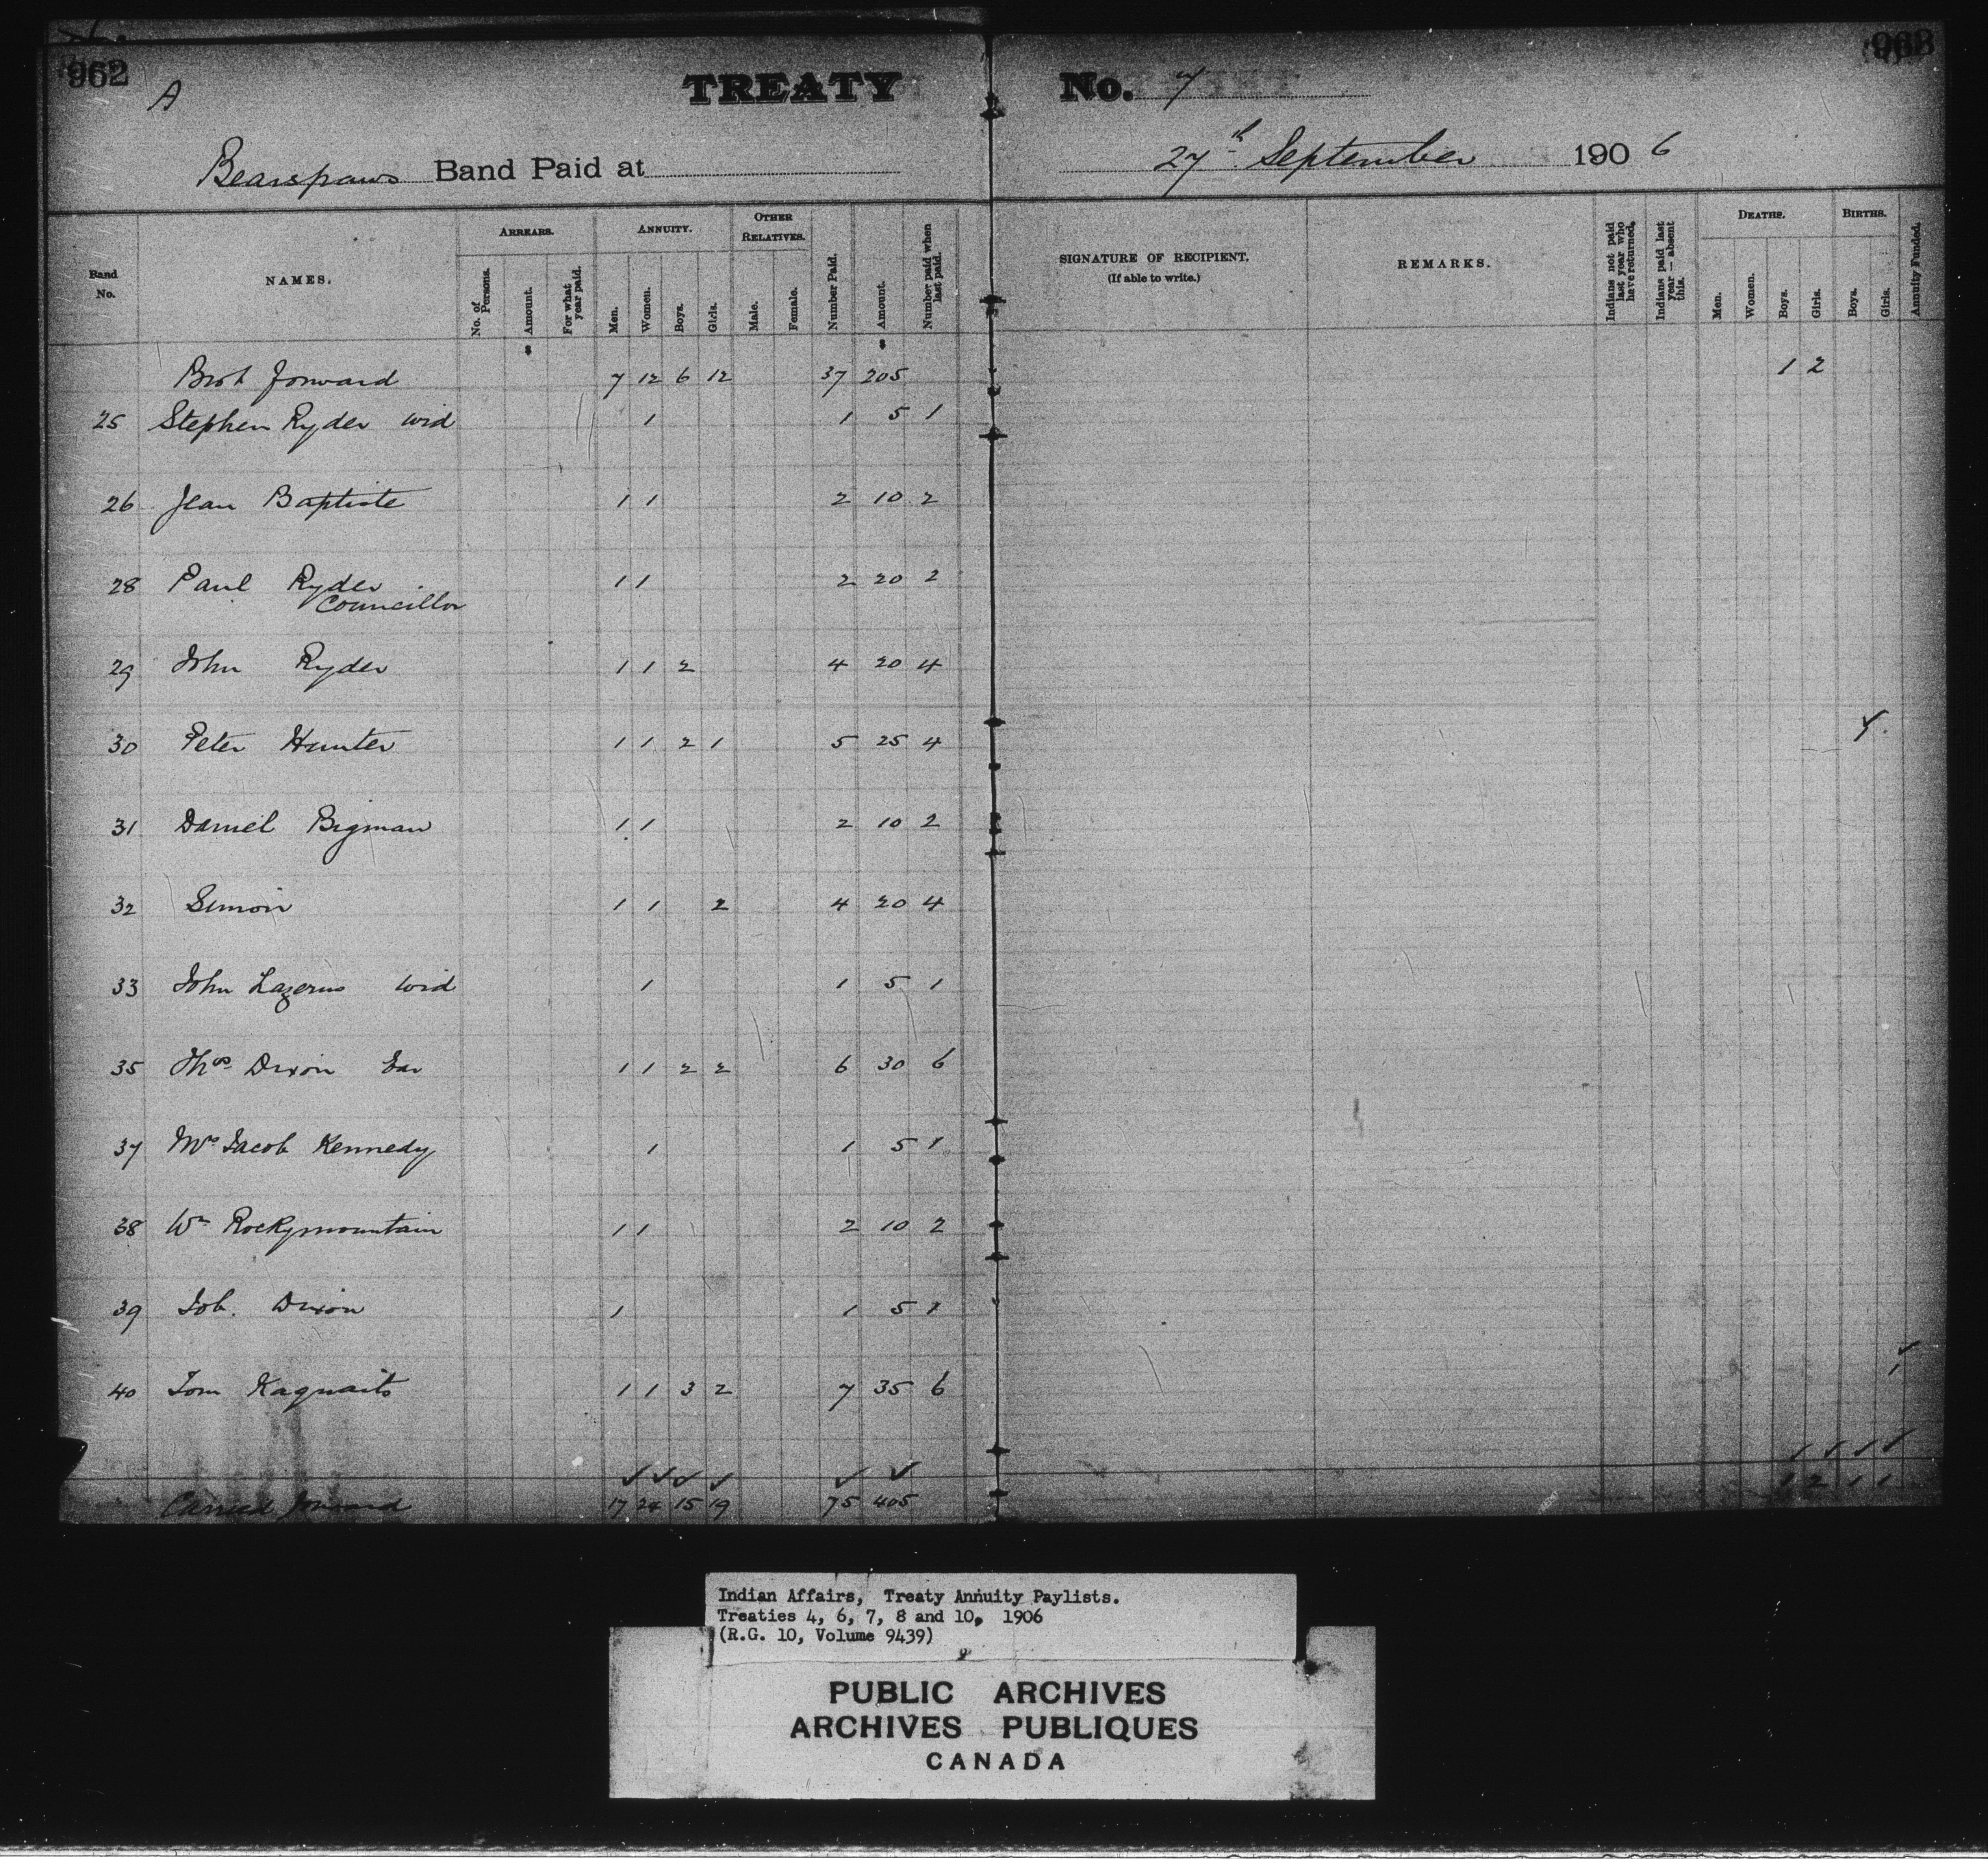 962
963
A
TREATY No. 7
Bearspaws Band Paid at 27th September 1906
Band No.
NAMES.
ARREARS.
No. of Persons.
Amount.
For what year paid.
ANNUITY.
Men.
Women.
Boys.
Girls.
OTHER RELATIVES.
Male.
Female.
Number Paid.
Amount.
Number paid when last paid.
SIGNATURE OF RECIPIENT.
(If able to write.)
REMARKS.
Indians not paid last year who have returned.
Indians paid last year — absent this.
DEATHS.
Men.
Women.
Boys.
Girls.
BIRTHS.
Boys.
Girls.
Annuity Funded.
Brot forward 7 12 6 12 37 205 1 2
25 Stephen Ryder wid 1 1 5 1
26 Jean Baptiste 1 1 2 10 2
28 Paul Ryder 1 1 2 20 2
Councillor
29 John Ryder 1 1 2 4 20 4
30 Peter Hunter 1 1 2 1 5 25 4
31 Daniel Bigman 1 1 2 10 2
32 Simon 1 1 2 4 20 4
33 John Lazerus wid 1 1 5 1
35 Thos Dixon 1 1 2 2 6 30 6
37 Mrs Jacob Kennedy 1 1 5 1
38 Wm Rockymountain 1 1 2 10 2
39 Job. Dixon 1 1 5 1
40 Tom Kaquaits 1 1 3 2 7 35 6 1
Carried forward 17 24 15 19 75 405 1 2 1 1
Indian Affairs, Treaty Annuity Paylists.
Treaties 4, 6, 7, 8 and 10, 1906
(R.G. 10, Volume 9439)
PUBLIC ARCHIVES
ARCHIVES PUBLIQUES
CANADA